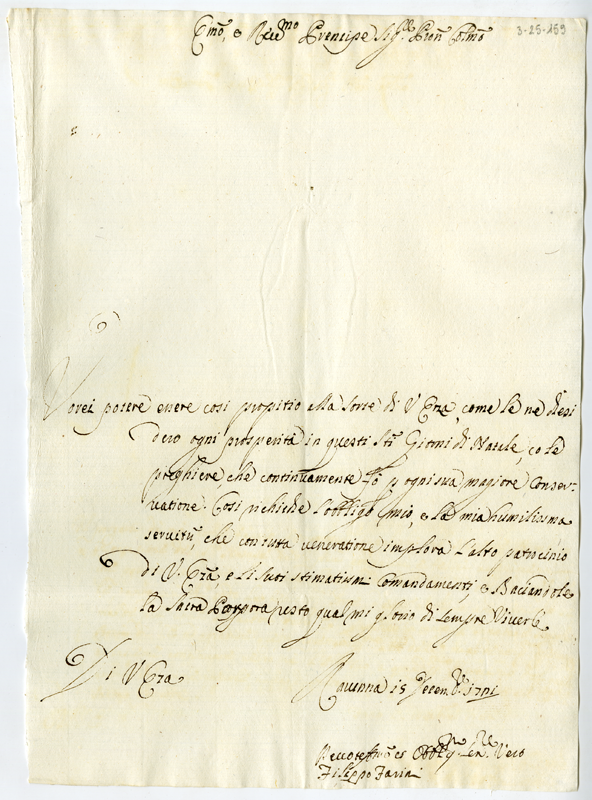 Emo, e Remo Prencipe Sigr Pron Colmo
3-25-159
Vorei potere essere cosi propitio alla sorte di V Emza, come le ne desi
dero ogni prosperità in questi Sti Giorni di Natale, co le
preghiere che continuamente fò p ogni sua magiore Conser-
vatione. Cosi richiede l'obbligo mio, e la mia humilissima
servitù, che con tutta veneratione implora l'alto patrocinio
di V. Emza, e li suoi stimatissmi Comandamenti, e Baciandole
la Sacra Porpora resto qual mi glorio di sempre Viverli
Di V Emza
Ravenna 15 Decembe 1701
Filippo Farini